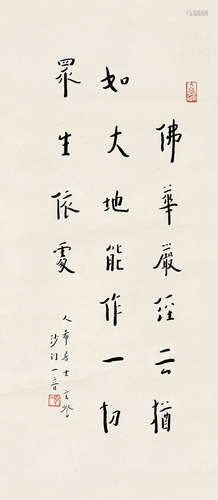 佛華嚴經云猶
如大地能作一切
眾生依處
人希居士玄
沙門一音